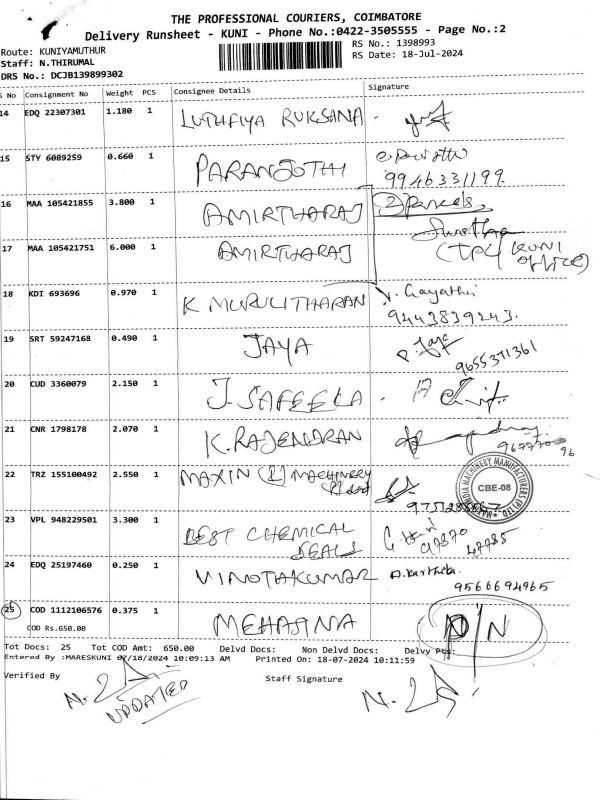 THE PROFESSIONAL COURIERS, COIMBATORE
Delivery Runsheet - KUNI - Phone No.:0422-3505555 - Page No.:2
Route: KUNIYAMUTHUR
RS No.: 1398993
Staff: N.THIRUMAL
RS Date: 18-Jul-2024
DRS No.: DCJB139899302
S No Consignment No Weight PCS Consignee Details Signature
14 EDQ 22307301 1.180 1 LUTHFIYA RUKSANA
15 STY 6089259 0.660 1 PARANJOTHI
9946331199
16 MAA 105421855 3.800 1 AMIRTHARAJ 2 Parcels
17 MAA 105421751 6.000 1 AMIRTHARAJ (TPC KUNI
office)
18 KDI 693696 0.970 1 K MURULITHARAN V. Gayathri
9443839243.
19 SRT 59247168 0.490 1 JAYA P. Jaya
9655371361
20 CUD 3360079 2.150 1 J. SAFEELA
21 CNR 1798178 2.070 1 K. RAJENDRAN
22 TRZ 155100492 2.550 1 MAXIN (I) MACHINERY
(P) Ltd
CBE-08
23 VPL 948229501 3.300 1 BEST CHEMICAL
SEALS
97870
47785
24 EDQ 25197460 0.250 1 VINOTAKUMAR D. Karthika
9566694965
25 COD 1112106576 0.375 1 MEHAJINA D/N
COD Rs.650.00
Tot Docs: 25 Tot COD Amt: 650.00 Delvd Docs: Non Delvd Docs: Delvy Pts:
Entered By :MARESKUNI 07/18/2024 10:09:13 AM Printed On: 18-07-2024 10:11:59
Verified By Staff Signature
UPDATED